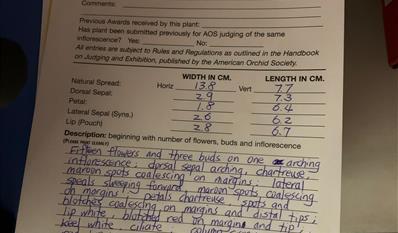 Comments:
Previous Awards received by this plant:
Has plant been submitted previously for AOS judging of the same
inflorescence? Yes: No:
All entries are subject to Rules and Regulations as outlined in the Handbook
on Judging and Exhibition, published by the American Orchid Society.
WIDTH IN CM. LENGTH IN CM.
Natural Spread: Horiz 13.8 Vert 7.7
Dorsal Sepal: 2.9 7.3
Petal: 1.8 6.4
Lateral Sepal (Syns.) 2.6 6.2
Lip (Pouch) 2.8 6.7
Description: beginning with number of flowers, buds and inflorescence
(PLEASE PRINT CLEARLY)
Fifteen flowers and three buds on one arching
inflorescence; dorsal sepal arching, chartreuse,
maroon spots coalescing on margins; lateral
forward, maroon spots coalescing
on margins; petals chartreuse, spots and
blotches coalescing on margins and distal tips;
lip white, blotched red on margins and tip;
keel white, ciliate,